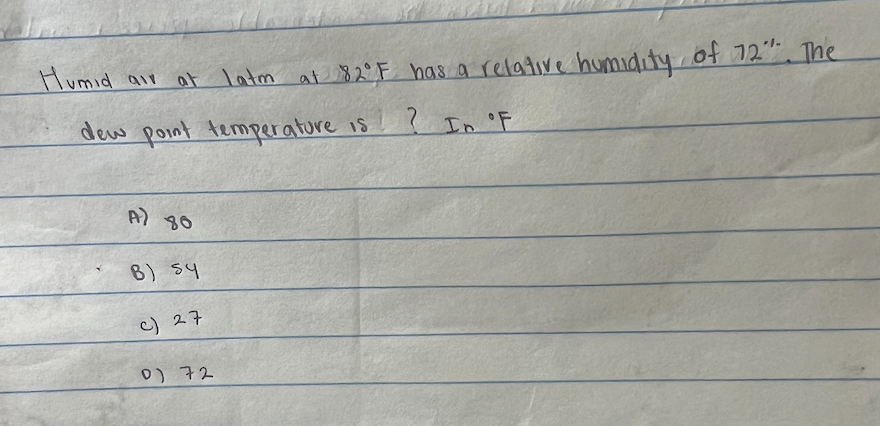 Humid air at 1atm at 82°F has a relative humidity of 72%. The
dew point temperature is ? In °F
A) 80
B) 54
C) 27
D) 72